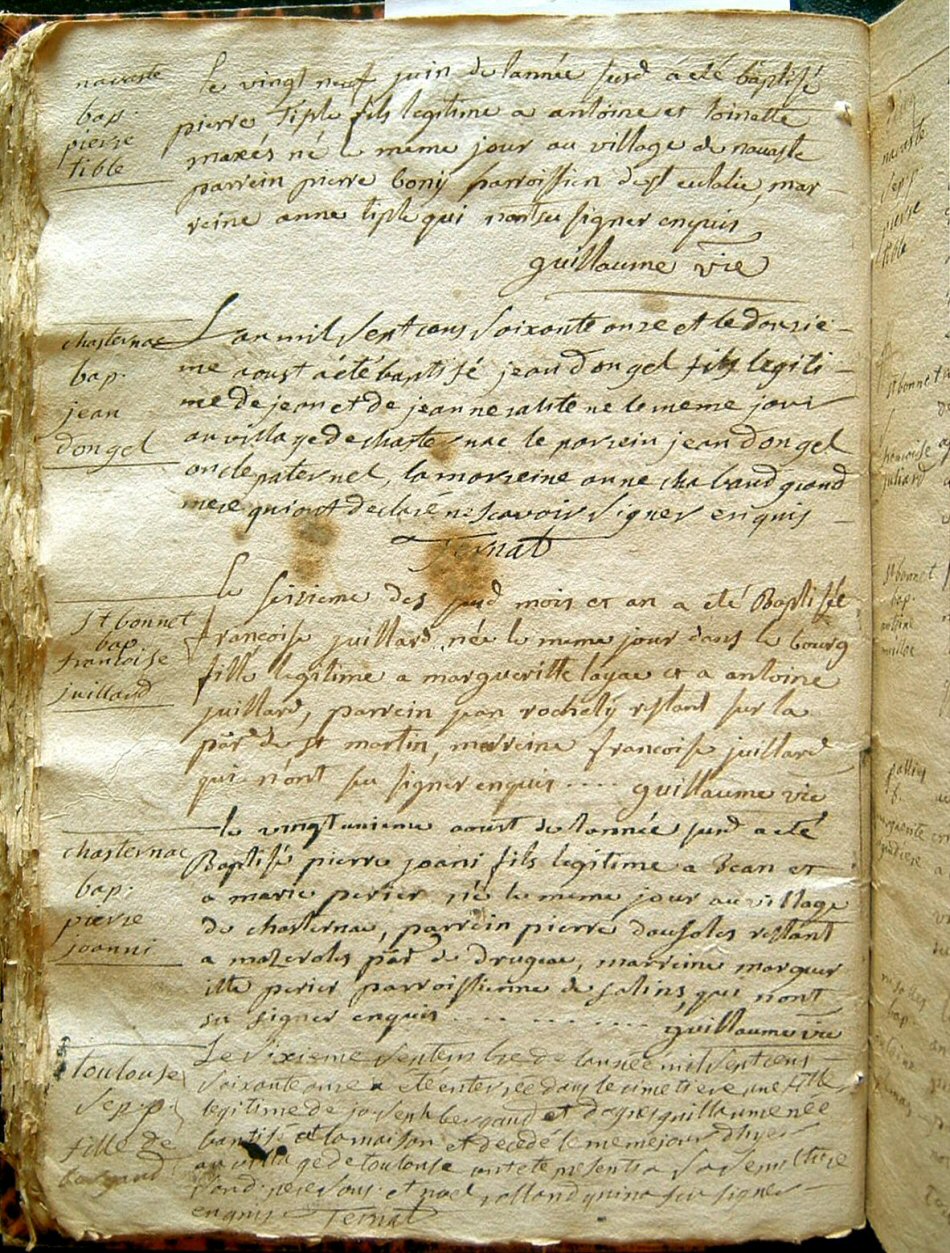 navaste
bap.
pierre
tible
le vingt neuf juin de lannée susd a été baptisé
pierre tiple fils legitime a antoine et toinette
mazés né le meme jour au village de navaste
parrein pierre bony parroissien de st eulalie, mar-
reine anne tiple qui nont su signer enquis
guillaume vie
chasternac
bap.
jean
dongel
Lan mil sept cens soixante onze et le douzie-
me aoust a été baptisé jean dongel fils legiti-
me de jean et de jeanne ne le meme jour
au village de chasternac le parrein jean dongel
oncle paternel, la marreine anne chabaud grand
mere qui ont declaré ne scavoir signer enquis
Ternat
st bonnet
bap
francoise
juillard
le seizieme des susd mois et an a été Baptisée
francoise juillard née le meme jour dans le bourg
fille legitime a margueritte layac et a antoine
juillard, parrein jean rochely restant sur la
par de st martin, marreine francoise juillard
qui nont su signer enquis .... guillaume vie
chasternac
bap.
pierre
joanni
le vingtunieme aoust de lannée susd a eté
Baptisé pierre joani fils legitime a Jean et
a marie perier né le meme jour au village
de chasternac, parrein pierre dausoles restant
a mazeroles par de drugeac, marreine marguer
itte perier parroissienne de salins, qui nont
su signer enquis . . . . . . . . . guillaume vie
toulouse
sep.p.
fille de
bergaud
Le sixieme septembre de lannée mil sept cens
soixante onze a eté enterrée dans le cimetiere une fille
legitime de joseph bergaud et dagnes guillaume née
baptisé a la maison et decedé le meme jour dhyer
au village de toulouse ont eté presents a sa sepulture
rolland qui na scu signer
enquis Ternat